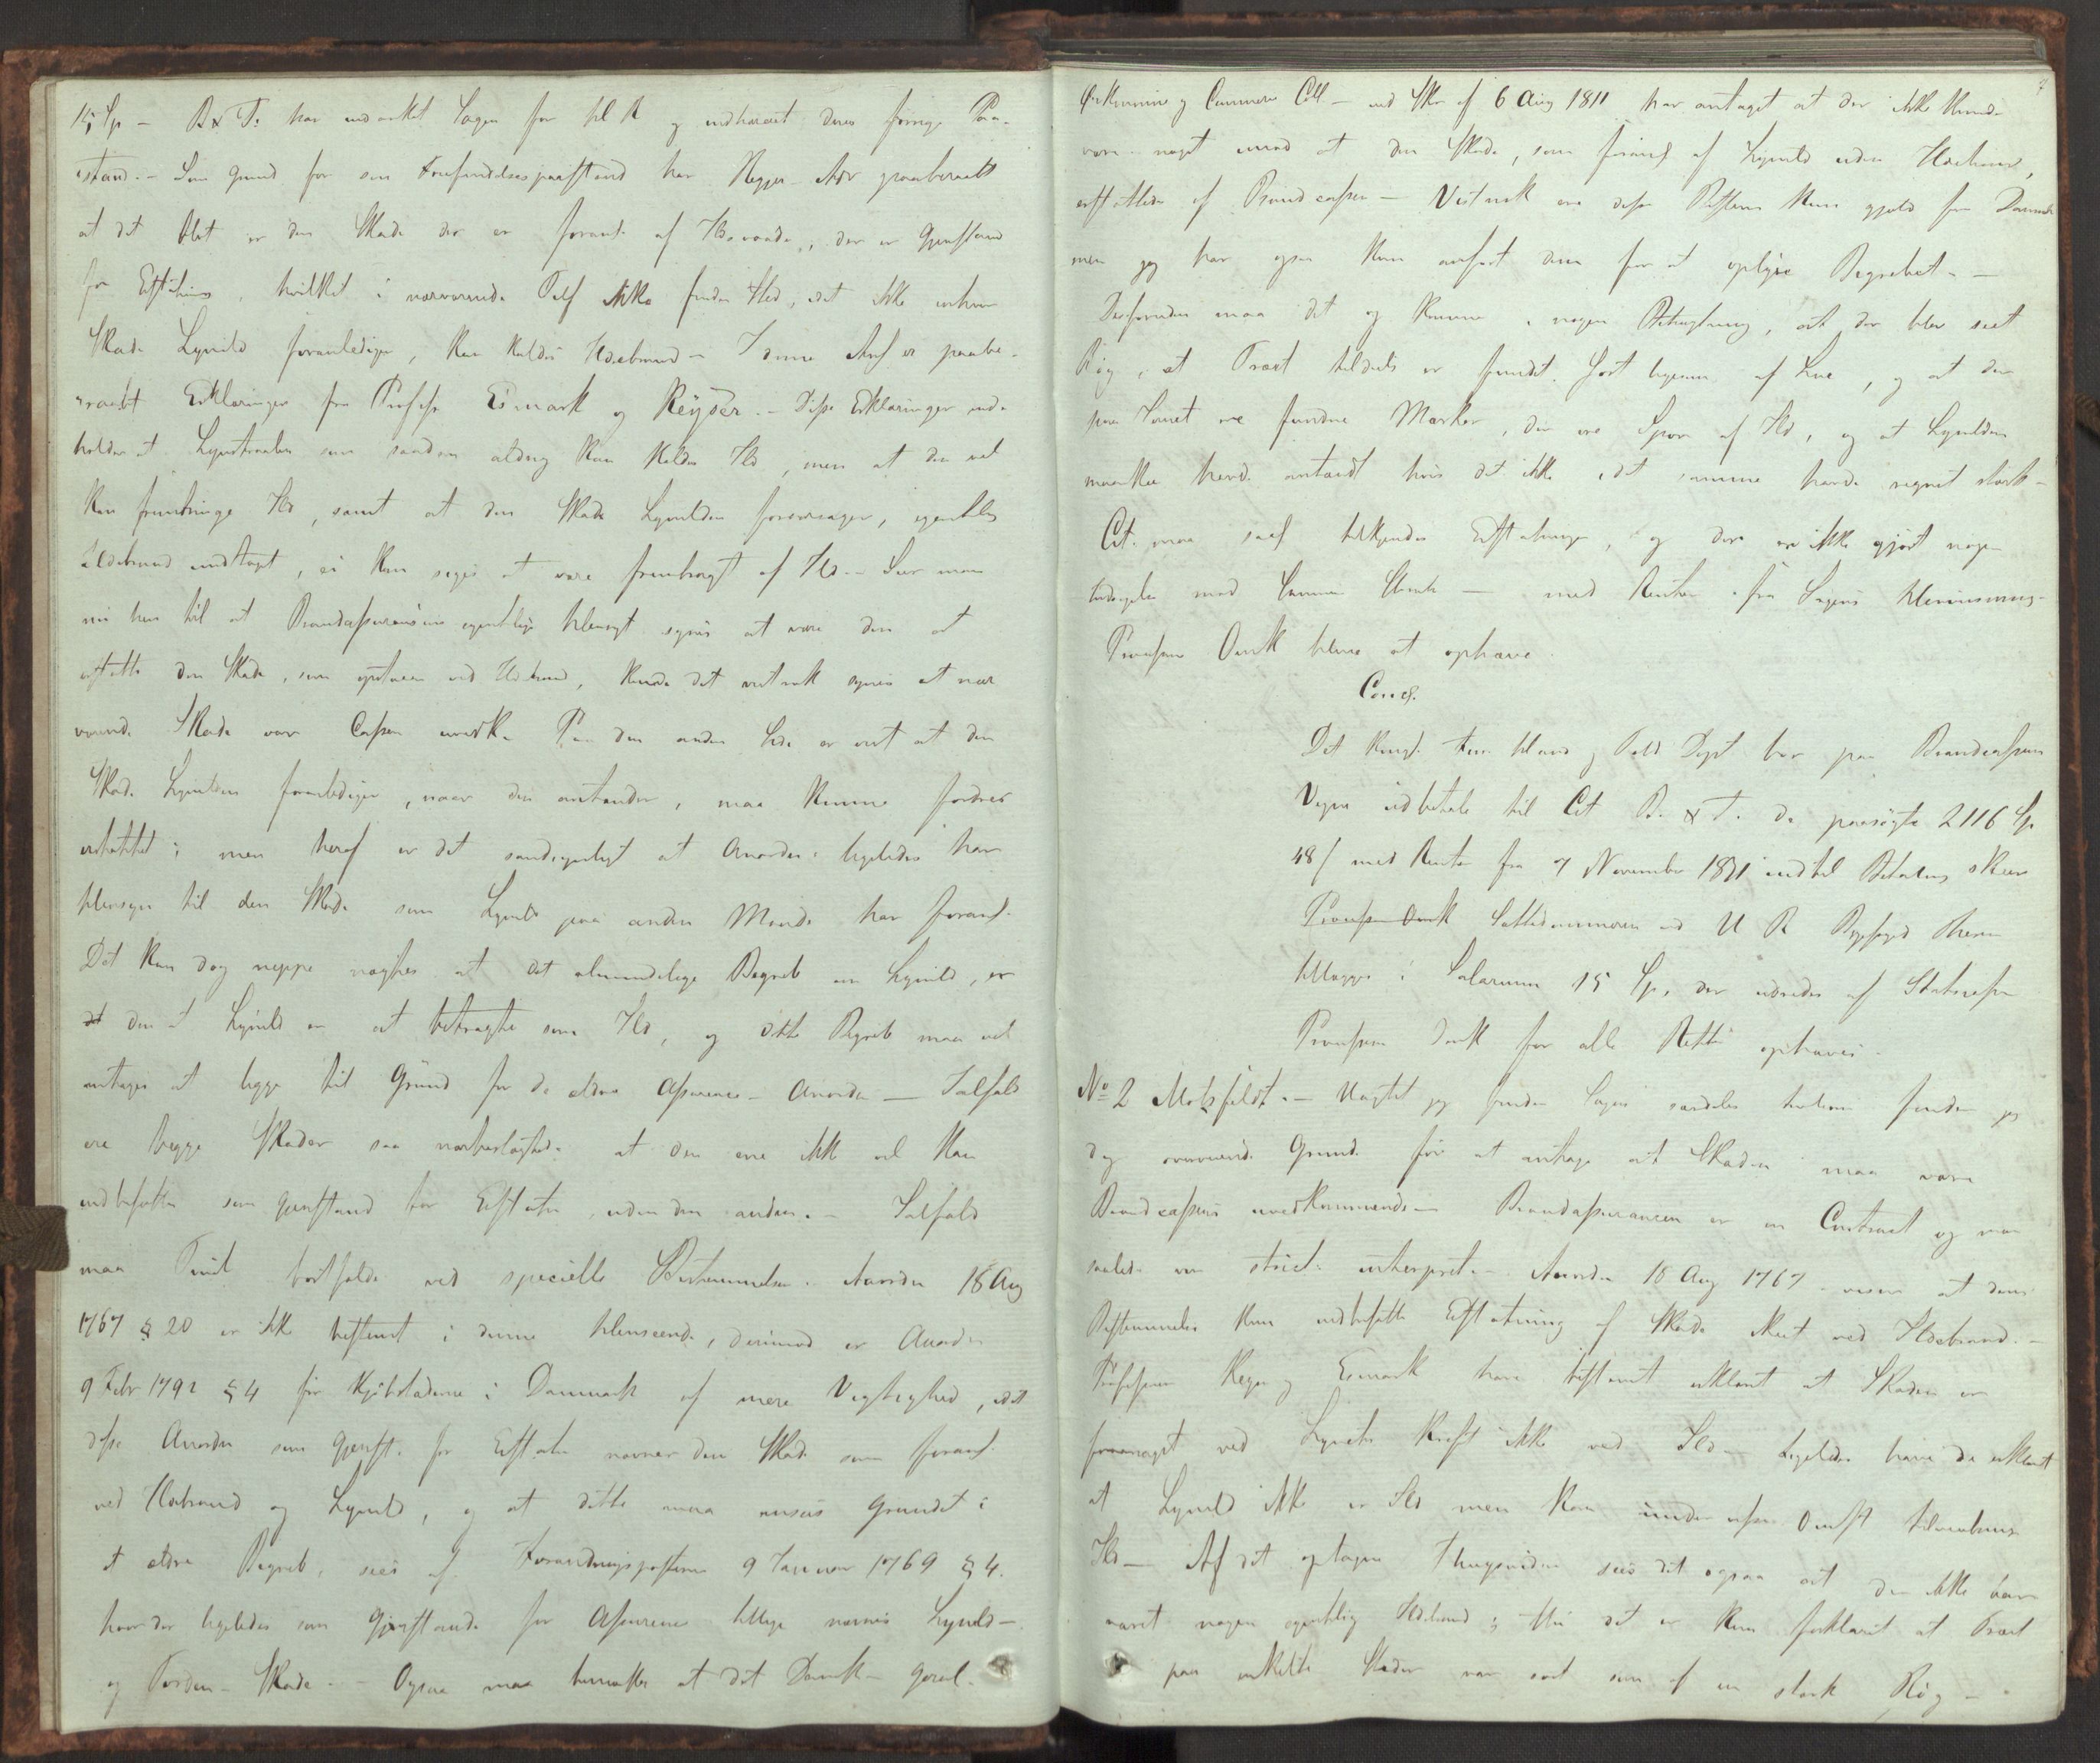 15 Sp – B & T. har indanket Sagen for H R og indhæret deres forrige Paa-
stand. – Som Grund for sin Frifindelsespaastand har Regjer. Adv paaberaabt
at det blot er den Skade der er foraars. af Ildsvaade, der er Gjenstand
for Erstatning, hvilket i nærværende Tilf ikke finder Sted, idet ikke enhver
Skade Lynild foranlediger, kan kaldes Ildebrand – I denne Anl. er paabe-
raabt Erklæringer fra Profess. Esmark og Keyser. – Disse Erklæringer inde-
holder at Lynstraalen som saadan aldrig kan kaldes Ild, men at den vel
kan frembringe Ild, samt at den Skade Lynilden foraarsager, egentlig
Ildebrand undtagt, ei kan siges at være frembragt af Ild. – Seer man
nu hen til at Brandassurancens egentlige Hensigt synes at være den at
erstatte den Skade, som opstaaer ved Ildebrand, kunde det vistnok synes at nær
værende Skade var Cassen uvedk. Paa den anden Side er vist at den
Skade Lynilden foranlediger, naar den antænder, maa kunne fordres
erstattet; men heraf er det sandsynligt at Anordn. ligeledes har
Hensyn til den Skade som Lynild paa anden Maade har foraars.
Det kan dog neppe nægtes at det almindelige Begreb om Lynild, er
det den at Lynild er at betragte som Ild, og dette Begreb maa vel
antages at ligge til Grund for de ældre Assurance-Anordn – Ialfald
ere begge Skader saa nærbeslægtede at den ene ikke vel kan
indbefattes som Gjenstand for Erstatn, uden den anden. – Ialfald
maa Tvivl bortfalde ved specielle Bestemmelser. Anordn 18 Aug
1767 § 20 er ikke bestemt i denne Henseende, derimod er Anordn
9 Febr 1792 § 4 for Kjøbstæderne i Danmark af mere Vigtighed, idet
disse Anordn som Gjenst. for Erstatn nævner den Skade som foraars.
ved Ildebrand og Lynild, og at dette maa ansees grundet i
et ældre Begreb, sees af Forandringsposterne 9 Januar 1769 § 4.
hvor der ligeledes som Gjenstand for Assurance tillige nævnes Lynild –
og Torden-Skade. – Ogsaa maa bemærkes at det Dansk Geral.
7
Oekonomie og Commerce Coll – ved Skr af 6 Aug 1811 har antaget at der ikke kunde
være noget imod at den Skade, som foraars. af Lynild uden Ildebrand,
erstattedes af Brandcassen – Vistnok ere disse Bestem. kun gjeld. for Danmark
men jeg har ogsaa kun anført dem for at oplyse Begrebet. –
Desforuden maa det og komme i nogen Betragtning, at der blev seet
Røg, at Træet tildeels er fundet sort ligesom af Lue, og at der
paa Taarnet ere fundne Mærker, der ere Spor af Ild, og at Lynilden
maaskee havde antændt hvis det ikke i det samme havde regnet stærk –
Cit. maa saal. tilkjendes Erstatning, og der er ikke gjort nogen
Indsigelse mod Summens Størrelse – med Renter fra Sagens Henviisning
Processens Omk bliver at ophæve
Concl.
Det Kongl. Fin. Hand. og Told Dept. bør paa Brandcassens
Vegne udbetale til Cit B. & T. de paasøgte 2116 Sp
48 ß med Renter fra 7 November 1821 indtil Betaling skeer
Processens Omk Sættedommeren ved U R Byefoged
tillægges i Salarium 15 Sp, der udredes af Statscassen
Processens Omk for alle Retter ophæves.
No 2 Motzfeldt. – Uagtet jeg finder Sagen særdeles tvivlsom finder jeg
dog overveiende Grunde for at antage at Skaden maa være
Brandcassens uvedkommende – Brandassurancen er en Contract og maa
saaledes være strict. interpret. – Anordn 18 Aug 1767 viser at dens
Bestemmelse kun indbefatte Erstatning af Skade skeet ved Ildebrand. –
Professorerne Keyser og Esmark have bestemt erklæret at Skaden er
foraarsaget ved Lynets Kraft ikke ved Ild – Ligeledes have de erklæret
at Lynild ikke er Ild men kan under visse Omst tilveiebringe
Ild – Af det optagne Thingsvidne sees det ogsaa at der ikke har
været nogen egentlig Ildebrand; thi det er kun forklaret at Træet
paa enkelte Steder var sort som af en stærk Røg –